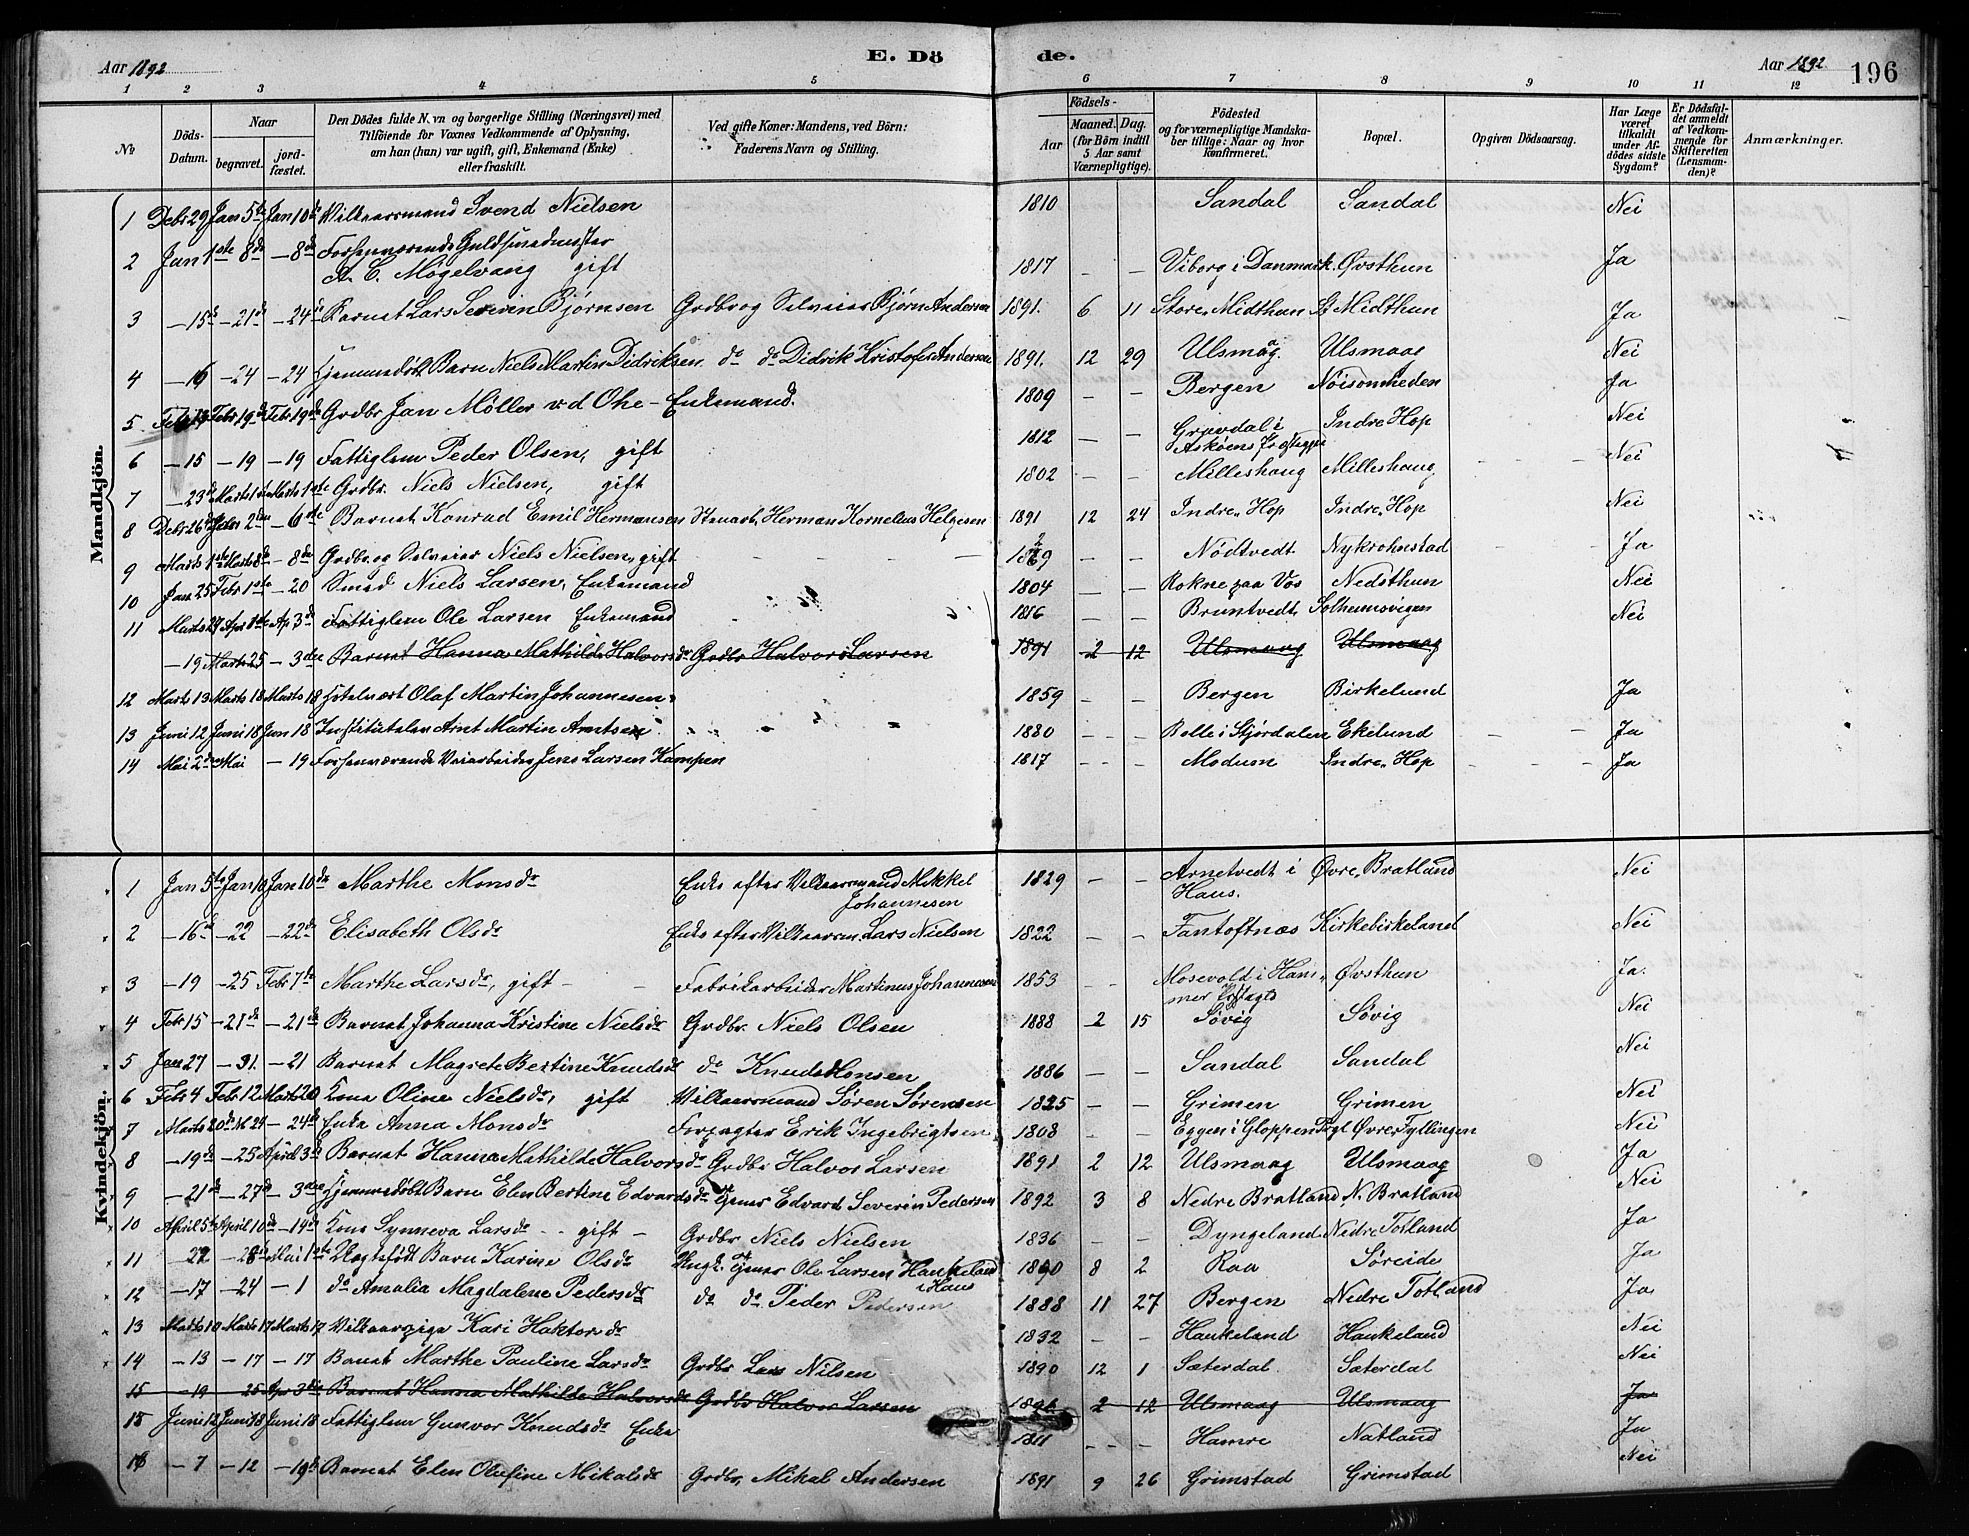 Aar 1892 E. Dö de. Aar 1892 196
1 2 3 4 5 6 7 8 9 10 11 12
No Döds-Datum. Naar begravet. jordfæstet. Den Dödes fulde Navn og borgerlige Stilling (Næringsvei) med Tilföiende for Voxnes Vedkommende af Oplysning, om han (hun) var ugift, gift, Enkemand (Enke) eller fraskilt. Ved gifte Koner: Mandens, ved Börn: Faderens Navn og Stilling. Födsels- Aar Maaned. Dag. (for Börn indtil 5 Aar samt Værnepligtige). Födested og for værnepligtige Mandskaber tillige: Naar og hvor konfirmeret. Bopæl. Opgiven Dödsaarsag. Har Læge været tilkaldt under Afdödes sidste Sygdom? Er Dödsfaldet anmeldt af Vedkommende for Skifteretten (Lensmanden)? Anmærkninger.
Mandkjön.
1 Debr 29 Jan 5te Jan 10de Vilkaarsmand Svend Nielsen 1810 Sandal Sandal Nei
2 Jan 1ste 8de – 8de Forhenværende Guldsmedmester
A. C. Mögelvang gift 1817 – – Viborg i Danmark. Øvsthun Ja
3 – 15de – 21de – 24de Barnet Lars Severin Bjørnsen Grdbr og Selveier Bjørn Andersen 1891. 6 11 Store Midthun St Midthun Ja
4 – 16 – 24 – 24 Hjemmedøbt Barn Niels Martin Didriksen do do Didrik Kristofer Andersen 1891. 12 29 Ulsmaag. Ulsmaag Nei
5 Febr 13 Febr 19de Febr 19de Grdbr Jan Möller v. d Ohe – Enkemand. 1809 – – Bergen Nöisomheden Ja
6 – 15 – 19 – 19 Fattiglem Peder Olsen, gift 1812 – – Gravdal i Askøens Indre Hop Nei
7 – 23de Marts 1ste Marts 1ste Grdbr. Niels Nielsen, gift 1802 – – Milleshaug Milleshaug Nei
8 Debr 26 Febr 2den – 6te Barnet Konrad Emil Hermansen Stuart. Herman Kornelius Helgesen 1891 12 24 Indre Hop Indre Hop Nei
9 Marts 1ste Marts 8de – 8de Grdbr og Selveier Niels Nielsen, gift – – Nödtvedt Nykrohnstad Ja
10 Jan 25 Febr 1ste – 20 Smed Niels Larsen, Enkemand 1804 – – Rokne paa Vos Nedsthun Nei
11 Marts 27 Apr 1ste Ap 3de Fattiglem Ole Larsen Enkemand 1816 – – Bruntvedt Solheimsvigen Nei
– 19 Marts 25 – 3die Barnet Hanna Mathilde Halvorsdr Grdbr Halvor Larsen 1891 2 12 Ulsmaag Ulsmaag
12 Marts 13 Marts 18 Marts 18 Hotelvært Olaf Martin Johannesen 1859 – – Bergen Birkelund Ja
13 Juni 12 Juni 18 Juni 18 Institutelev Arnt Martin Arntsen 1880 – – Bolle i Stjørdalen Ekelund Ja
14 Mai 2den Mai – 19 Forhenværende Veiarbeider Jens Larsen Kampen 1817 – – Modum Indre Hop Ja
Kvindekjön.
1 Jan 5te Jan 10 Jan 10de Marthe Monsdr Enke efter Vilkaarsmand Mikkel
Johannesen 1829 – – Arnetvedt i Haus. Øvre Bratland Nei
2 – 16de – 22 – 22de Elisabeth Olsdr Enke efter Vilkaarsm. Lars Nielsen 1822 – – Fantoftnæs Kirkebirkeland Nei
3 – 19 – 25 Febr 7de Marthe Larsdr, gift – Fabrikarbeider Martinus Johannesen 1853 – – Mosevold i Hammer Øvsthun Ja.
4 Febr 15 – 21de – 21de Barnet Johanna Kristine Nielsdr Grdbr. Niels Olsen 1888 2 15 Søvig Søvig Nei
5 Jan 27 – 31. – 21 Barnet Magrete Bertine Knudsdr do Knud Monsen 1886 – – Sandal Sandal Nei
6 Febr 4 Febr 12 Marts 20 Kona Oline Nielsdr, gift Vilkaarsmand Sören Sörensen 1825 – – Grimen Grimen Nei
7 Marts 20de – 24de Enke Anna Monsdr Forpagter Erik Ingebrigtsen 1808 – – Eggen i Gloppen Øvre Fyllingen Nei
8 – 19de – 25 April 3de Barnet Hanna Mathilde Halvorsdr Grdbr Halvor Larsen 1891 2 12 Ulsmaag Ulsmaag Ja
9 – 21de – 27de – 3die Hjemmedøbt Barn Elen Bertine Edvardsdr Tjener Edvard Severin Pedersen 1892 3 8 Nedre Bratland N. Bratland Nei
10 April 5te April 10de – 14de Kona Synneva Larsdr – gift – Grdbr Niels Nielsen 1836 – – Dyngeland Nedre Totland Ja
11 – 22 – 28de Mai 1ste Uægtefödt Barn Karine Olsdr Ungk. Tjener Ole Larsen Haukeland
i Haus 1890 8 2 Raa Søreide Ja
12 – 17 – 24 – 1 do Amalia Magdalene Pedersdr do do Peder Pedersen 1888 11 27 Bergen Nedre Totland Ja
13 Marts 10 Marts 17 Marts 17 Vilkaarpige Kari Haktorsdr 1832 – – Haukeland Haukeland Nei
14 – 13 – 17 – 17 Barnet Marthe Pauline Larsdr Grdbr Lars Nilsen 1890 12 1 Sæterdal. Sæterdal Nei
15 – 19 25 Apr 3die Barnet Hanna Mathilde Halvorsdr Grdbr Halvor Larsen 1891 2 12 Ulsmaag Ulsmaag Ja
15 Juni 12 Juni 18 Juni 18 Fattiglem Gunvor Knudsdr Enke 1811 – – Hamre Natland Ja
16 – 7 – 12 – 19de Barnet Elen Olufine Mikalsdr Grdbr, Mikal Andersen 1891 9 26 Grimstad Grimstad Nei